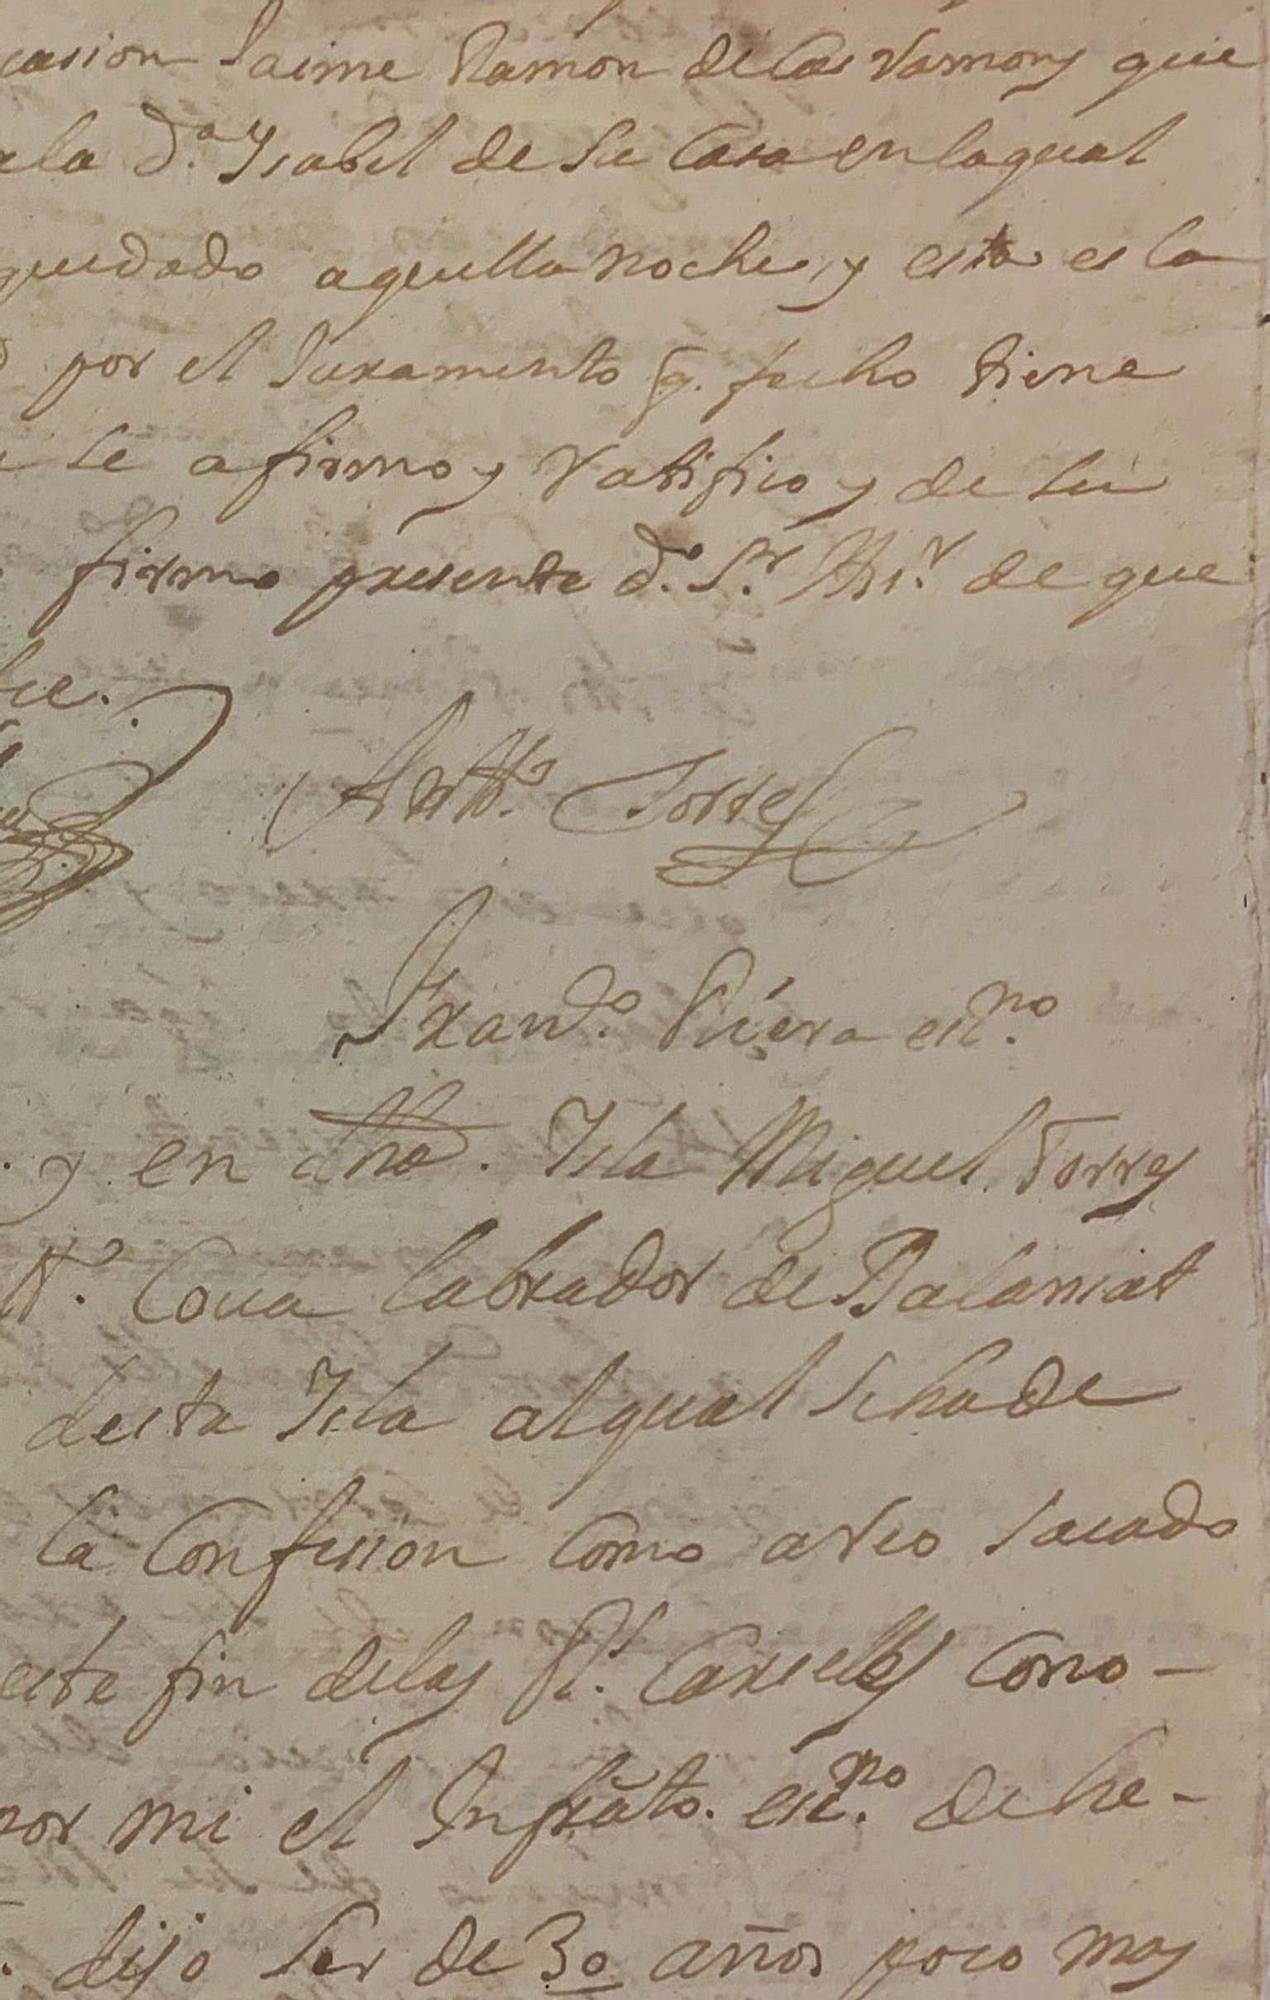 casion Jaime Ramon de Cas Ramons que
ala d.ª Ysabel de su Casa en laqual
quedado aquella noche, y esta es la
por el Juramento q. fecho tiene
se afirmo y ratifico y de su
firmo presente d.º S.r de que
fee.
Antt.º Torres
Fran.do Riera esc.no
y en dha. Isla Miguel Torres
Cova labrador de Balansat
desta Isla alqual se ha de
la Confession como a reo sacado
este fin delas R.s Carseles Cono-
por mi el Infrāto. esc.no de he-
dijo ser de 30 años poco mas